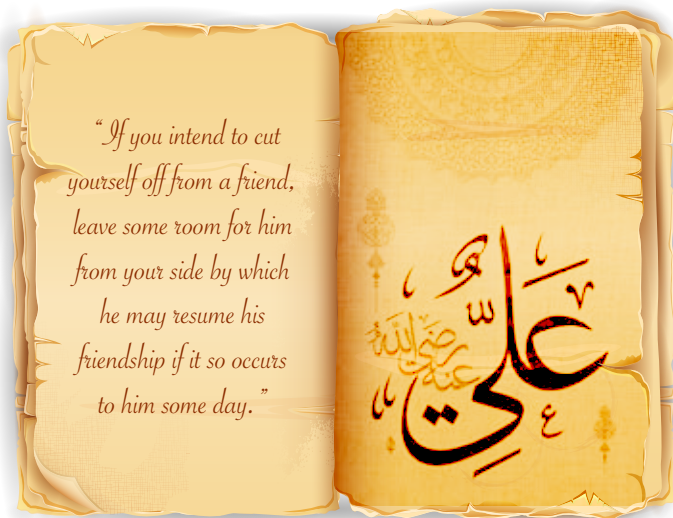 “If you intend to cut
yourself off from a friend,
leave some room for him
from your side by which
he may resume his
friendship if it so occurs
to him some day.”
عليّ
رضي الله عنه